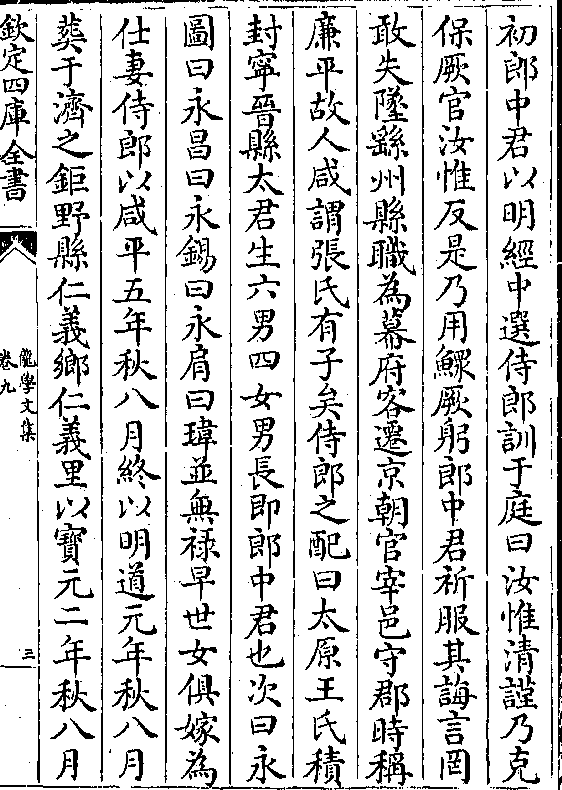 初郎中君以明經中選侍郎訓于庭曰汝惟清謹乃克
保厥官汝惟反是乃用鰥厥躬郎中君祈服其誨言罔
敢失墜繇州縣職為幕府客遷京朝官宰邑守郡時稱
廉平故人咸謂張氏有子矣侍郎之配曰太原王氏積
封寧晉縣太君生六男四女男長即郎中君也次曰永
圖曰永昌曰永錫曰永肩曰瑋並無祿早世女俱嫁為
仕妻侍郎以咸平五年秋八月終以明道元年秋八月
葬于濟之鉅野縣仁義鄉仁義里以寶元二年秋八月
欽定四庫全書
龍學文集
卷九
三